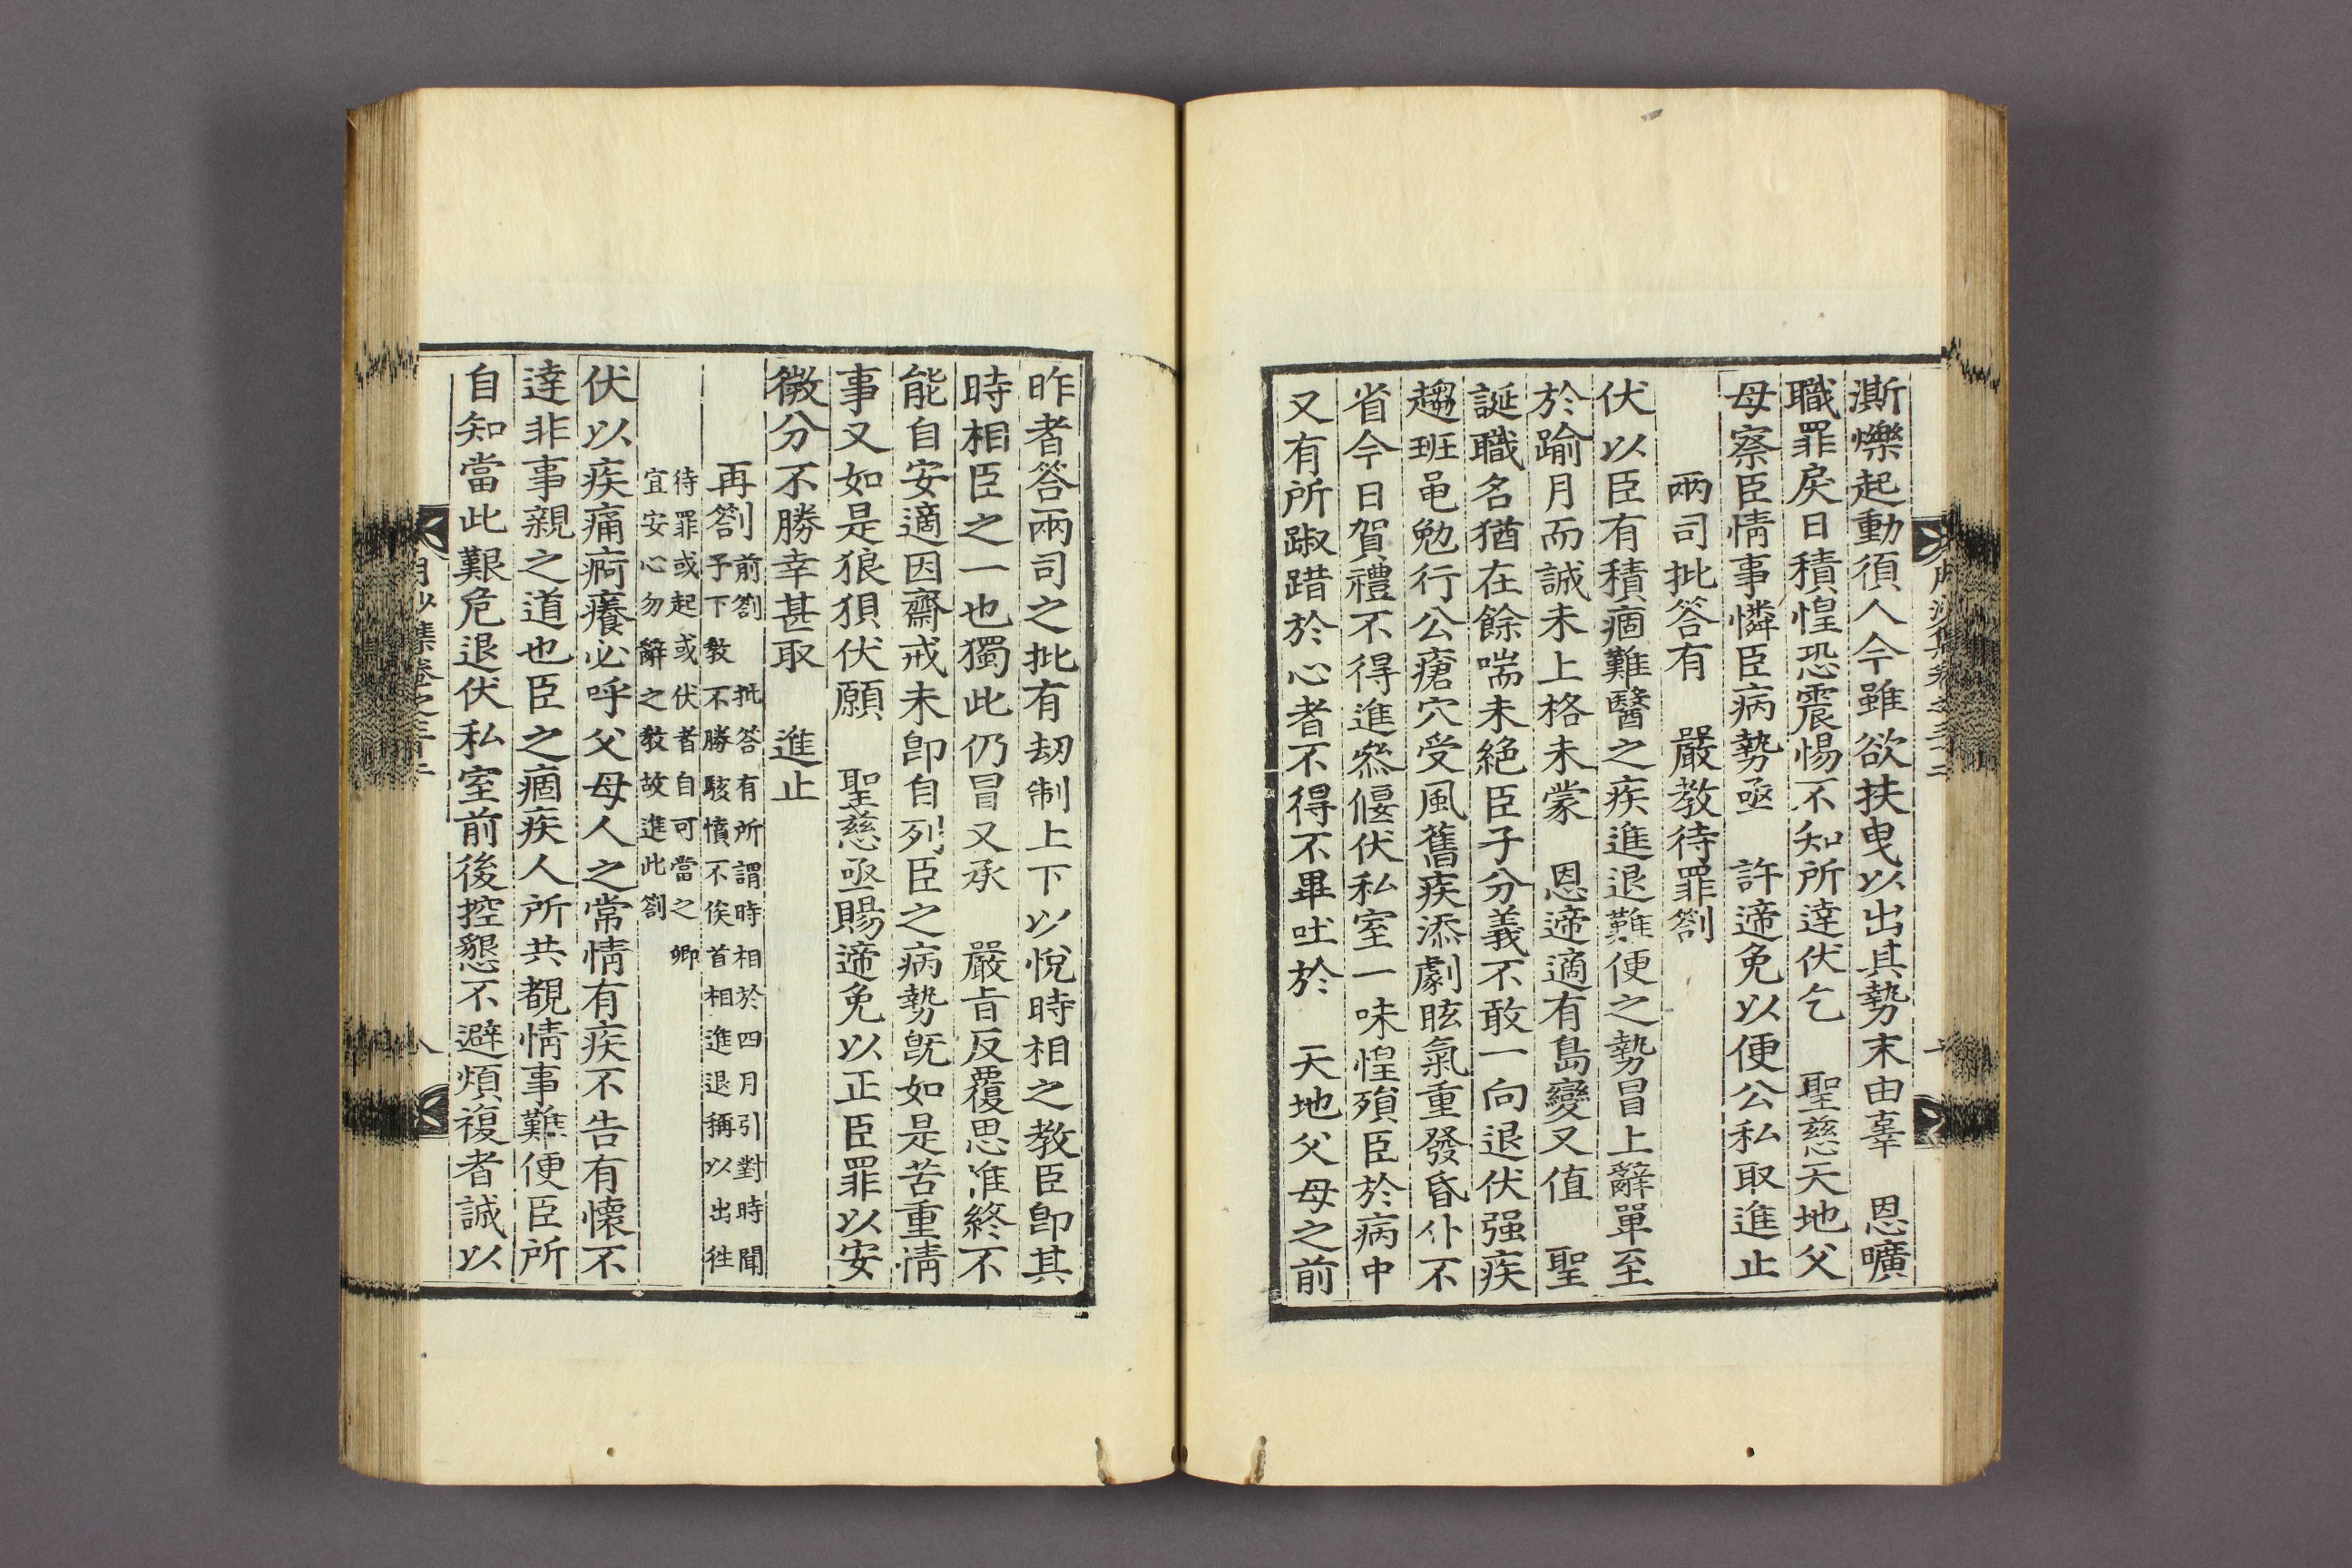 澌爍起動須人今雖欲扶曳以出其勢末由辜 恩曠
職罪戾日積惶恐震惕不知所達伏乞 聖慈天地父
母察臣情事憐臣病勢亟 許遞免以便公私取進止
兩司批答有 嚴教待罪劄
伏以臣有積痼難醫之疾進退難便之勢冒上辭單至
於踰月而誠未上格未蒙 恩遞適有島變又值 聖
誕職名猶在餘喘未絶臣子分義不敢一向退伏强疾
趨班黽勉行公瘡穴受風舊疾添劇眩氣重發昏仆不
省今日賀禮不得進叅偃伏私室一味惶殞臣於病中
又有所踧踖於心者不得不畢吐於 天地父母之前
昨者答兩司之批有刼制上下以悅時相之教臣卽其
時相臣之一也獨此仍冒又承 嚴旨反覆思惟終不
能自安適因齋戒未卽自列臣之病勢旣如是苦重情
事又如是狼狽伏願 聖慈亟賜遞免以正臣罪以安
微分不勝幸甚取 進止
再劄前劄 批答有所謂時相於四月引對時聞
子下教 不勝駭憤不俟首相進退稱以出往
待罪或起或伏者自可當之 卿
宜安心勿辭之教故進此劄
伏以疾痛疴癢必呼父母人之常情有疾不告有懷不
達非事親之道也臣之痼疾人所共覩情事難便臣所
自知當此艱危退伏私室前後控懇不避煩複者誠以